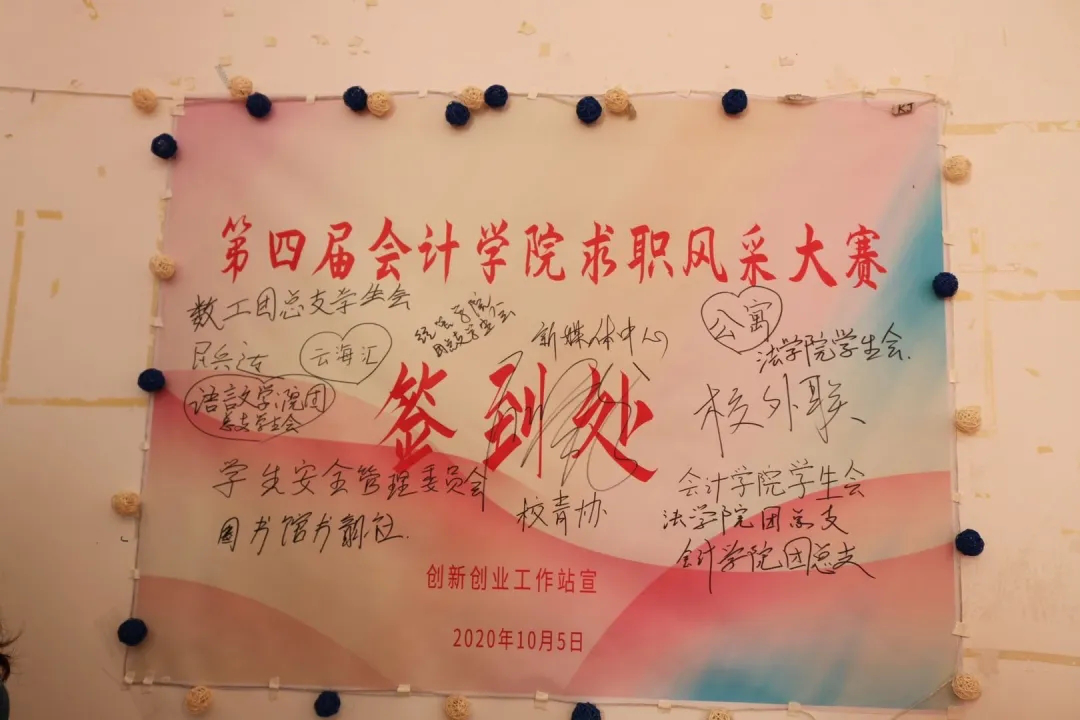 KJ
第四届会计学院求职风采大赛
数工团总支学生会
经管学院
团总支学生会
新媒体中心
公寓
法学院学生会.
民兵连
云海汇
签到处
语言文学院团
总支学生会
校外联
学生安全管理委员会
校青协
会计学院学生会
法学院团总支
图书馆书翱社.
会计学院团总支
创新创业工作站宣
2020年10月5日